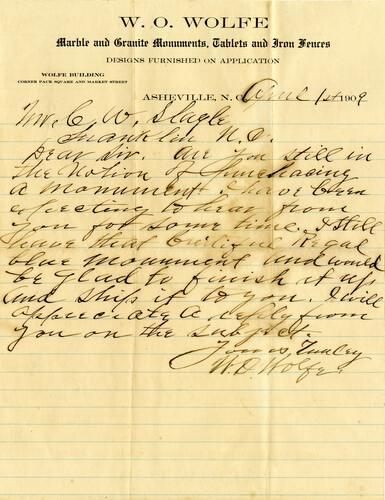 W. O. WOLFE
Marble and Granite Monuments, Tablets and Iron Fences
DESIGNS FURNISHED ON APPLICATION
WOLFE BUILDING
CORNER PACK SQUARE AND MARKET STREET
ASHEVILLE, N. C. April 1st 1909
Mr. C. W. Slagle
Franklin N.C.
Dear Sir. Are you still in
the Notion of Purchasing
a monument I have been
expecting to hear from
you for some time. I still
have that Regal
blue monument and would
be glad to finish it up
and ship it to you. I will
appreciate a reply from
you on the subject.
Yours, Truley
W. O. Wolfe